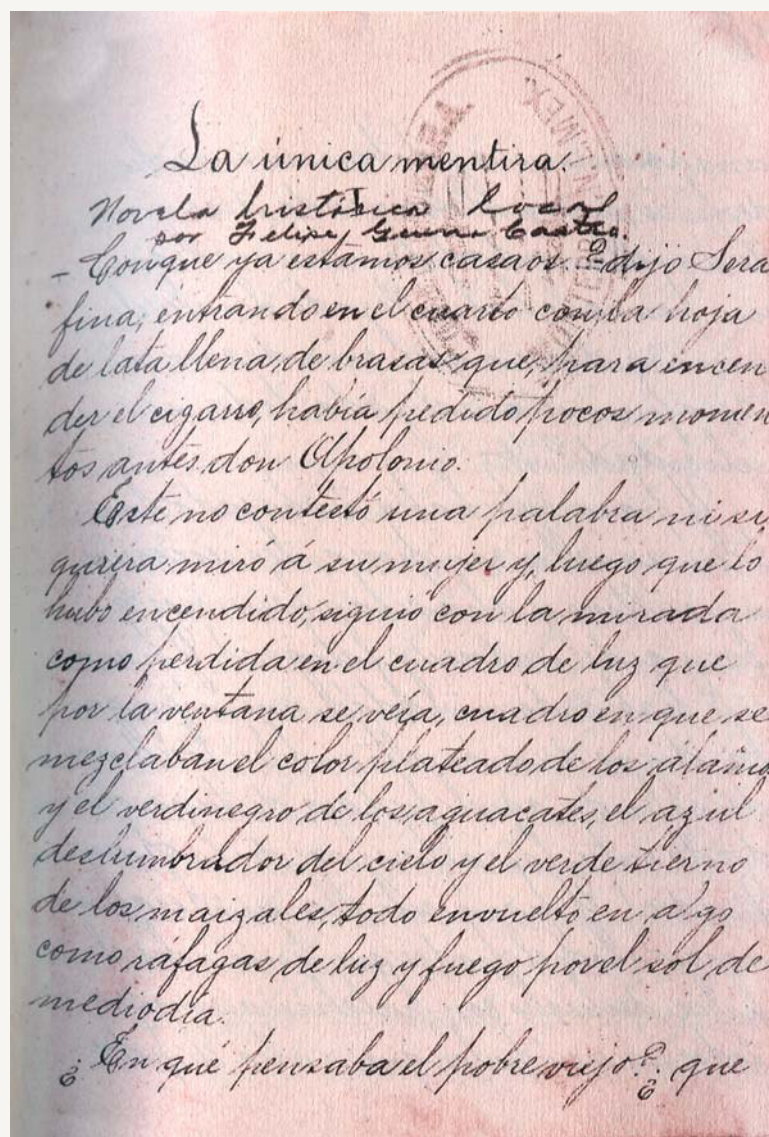 La única mentira.
Novela histórica local
por Felipe Guerra Castro.
– Conque ya estamos casaos? dijo Sera
fina, entrando en el cuarto con la hoja
de lata llena de brasas que, para encen
der el cigarro, había pedido pocos momen
tos antes don Apolonio.
Este no contestó una palabra ni si
quiera miró á su mujer y, luego que lo
hubo encendido, siguió con la mirada
como perdida en el cuadro de luz que
por la ventana se veía, cuadro en que se
mezclaban el color plateado de los álamo
y el verdinegro de los aguacates, el azul
deslumbrador del cielo y el verde tierno
de los maizales, todo envuelto en algo
como ráfagas de luz y fuego por el sol de
mediodía.
¿En qué pensaba el pobre viejo? ¿ que